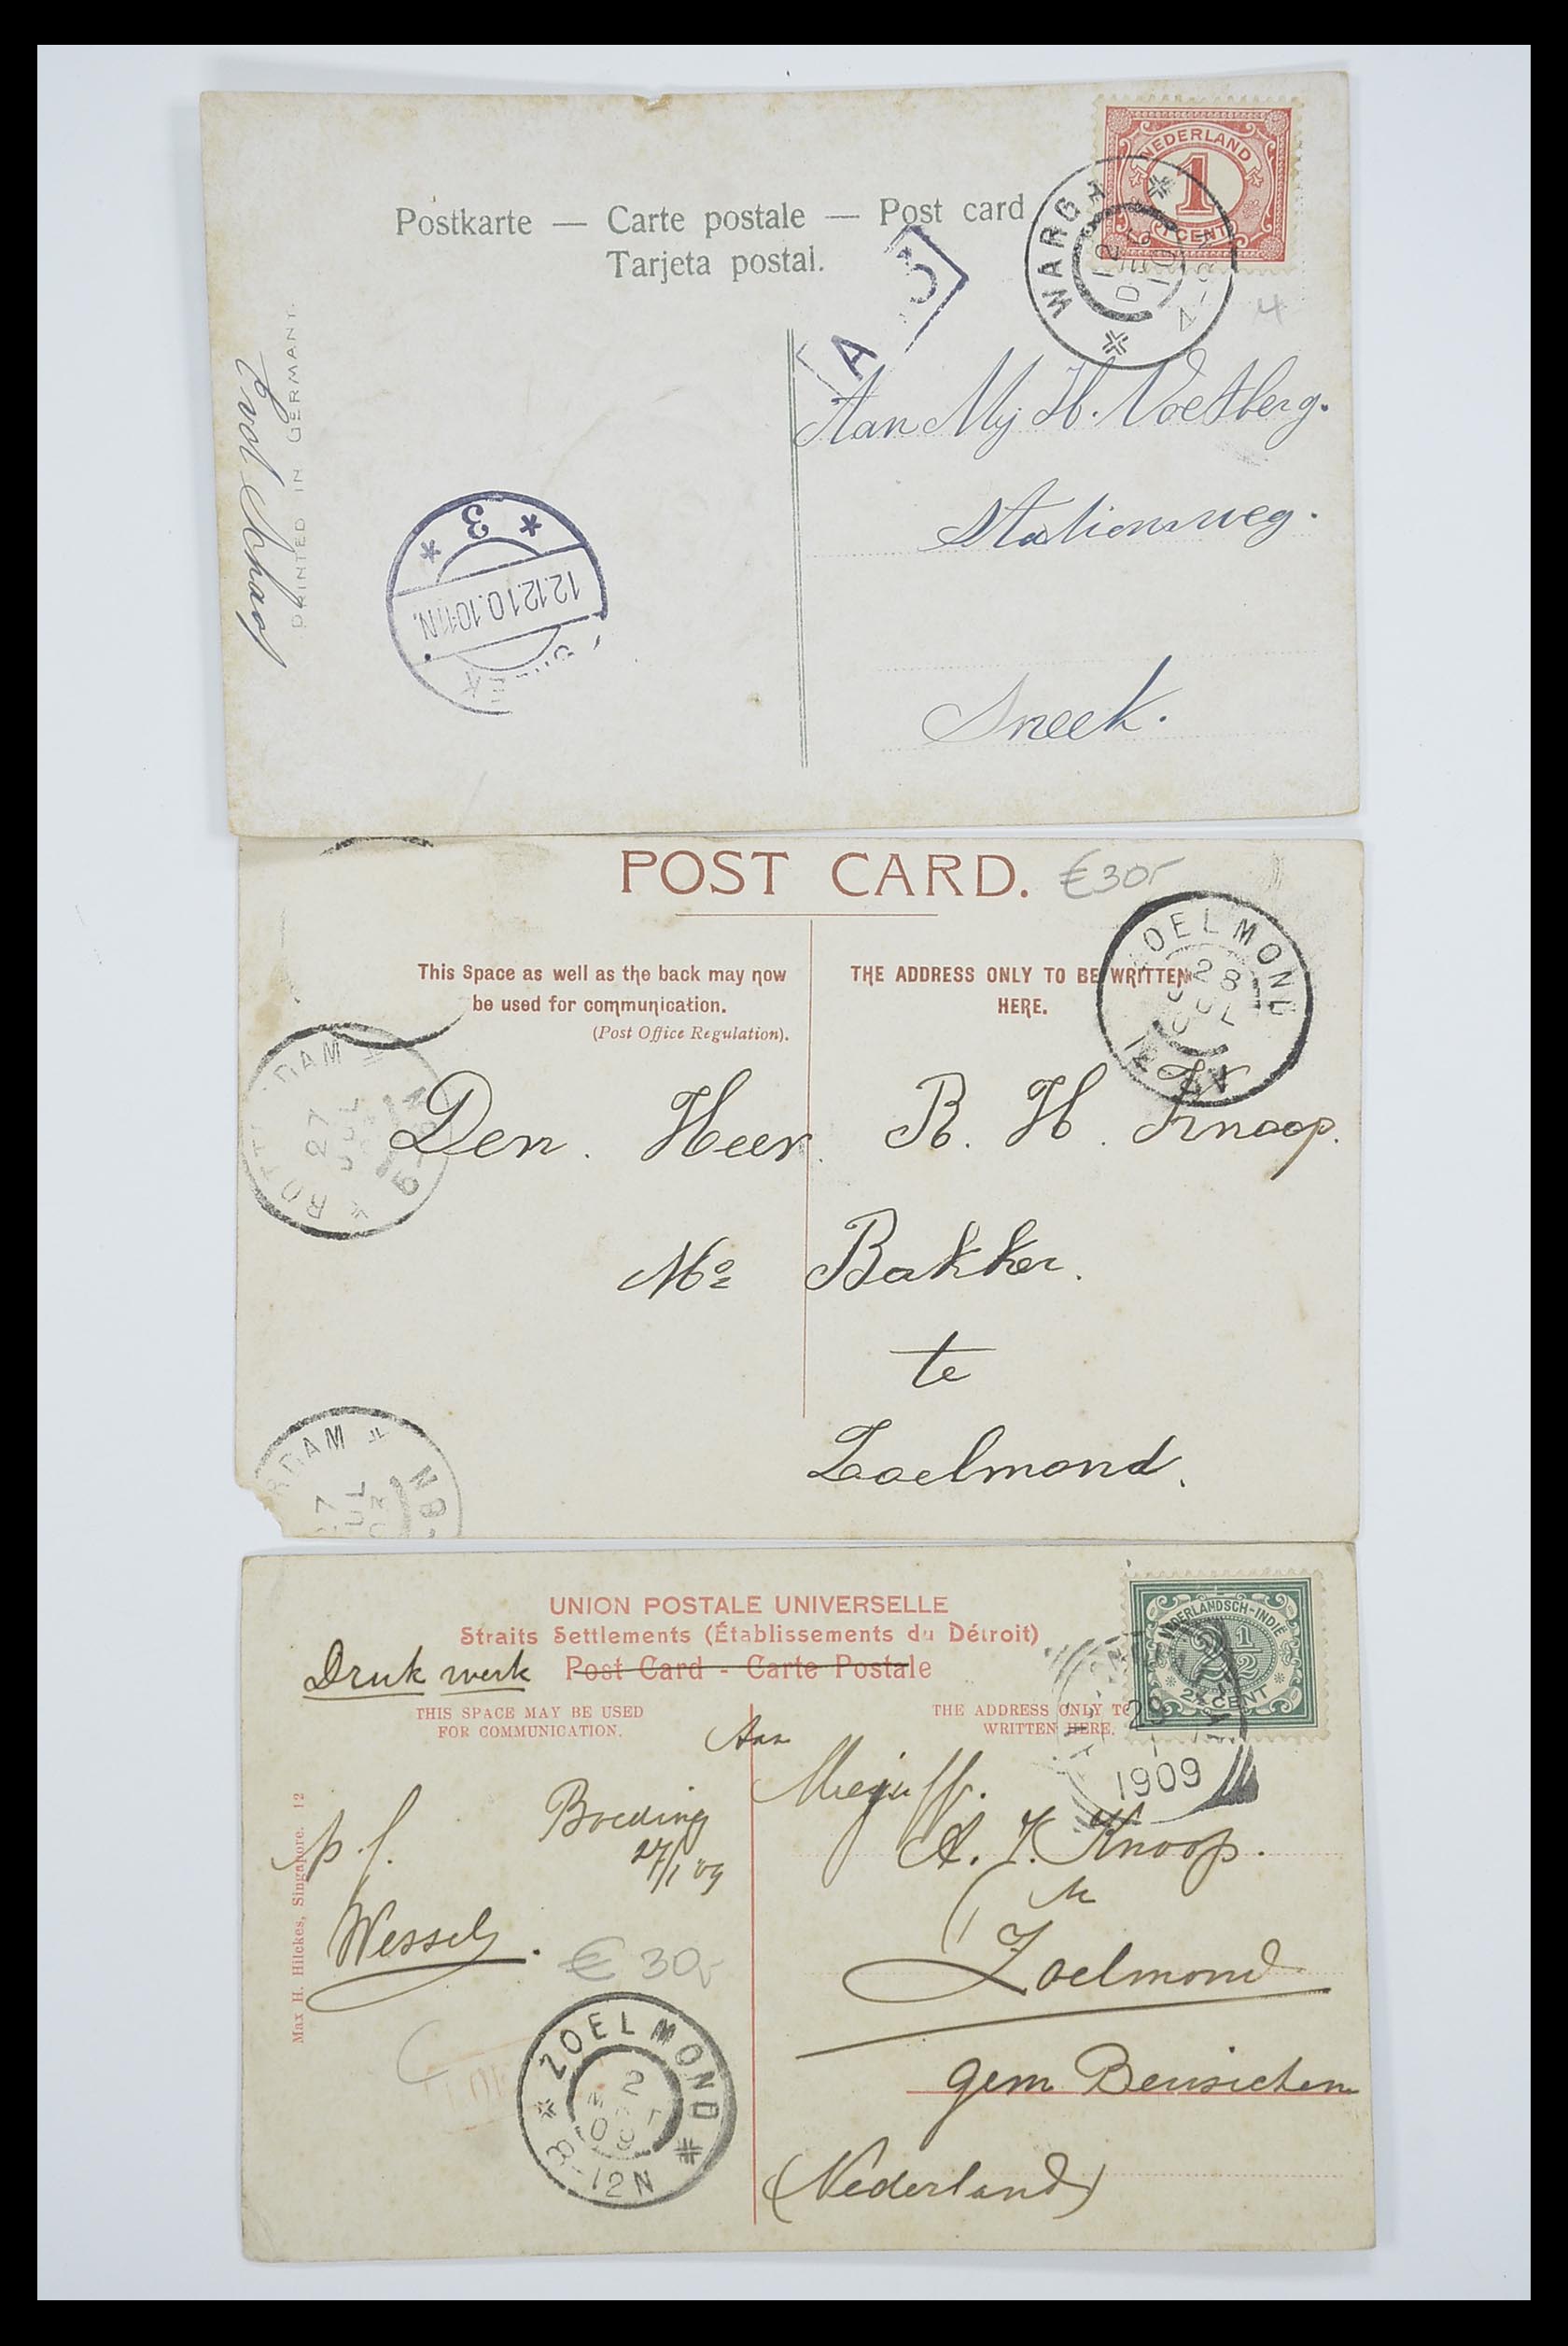 Postkarte — Carte postale — Post card
Tarjeta postal.
NEDERLAND
1
1 CENT
WARGA
A
3
PRINTED IN GERMANY
Aan Mej H. Voetberg.
Stationsweg.
Sneek.
3
12.12.10.10-11N.
SNEEK
POST CARD. €30,-
This Space as well as the back may now
be used for communication.
(Post Office Regulation).
THE ADDRESS ONLY TO BE WRITTEN
HERE.
ZOELMOND
28
JUL
ROTTERDAM
27
JUL
Den Heer R. H. Knoop.
Mr Bakker.
te
Zoelmond.
ROTTERDAM
27
JUL
UNION POSTALE UNIVERSELLE
Straits Settlements (Établissements du Détroit)
Druk werk Post Card - Carte Postale
THIS SPACE MAY BE USED
FOR COMMUNICATION.
THE ADDRESS ONLY TO
WRITTEN HERE.
NEDERLANDSCH-INDIË
2½
2½ CENT
29
1909
Max H. Hilckes, Singapore. 12
p. f.
Boeding
27/1 09
Wessels.
€ 30,-
Aan
Mejuff.
A. J. Knoop.
te
Zoelmond
gem Beusichem
(Nederland)
ZOELMOND
2
MRT
09
8-12N